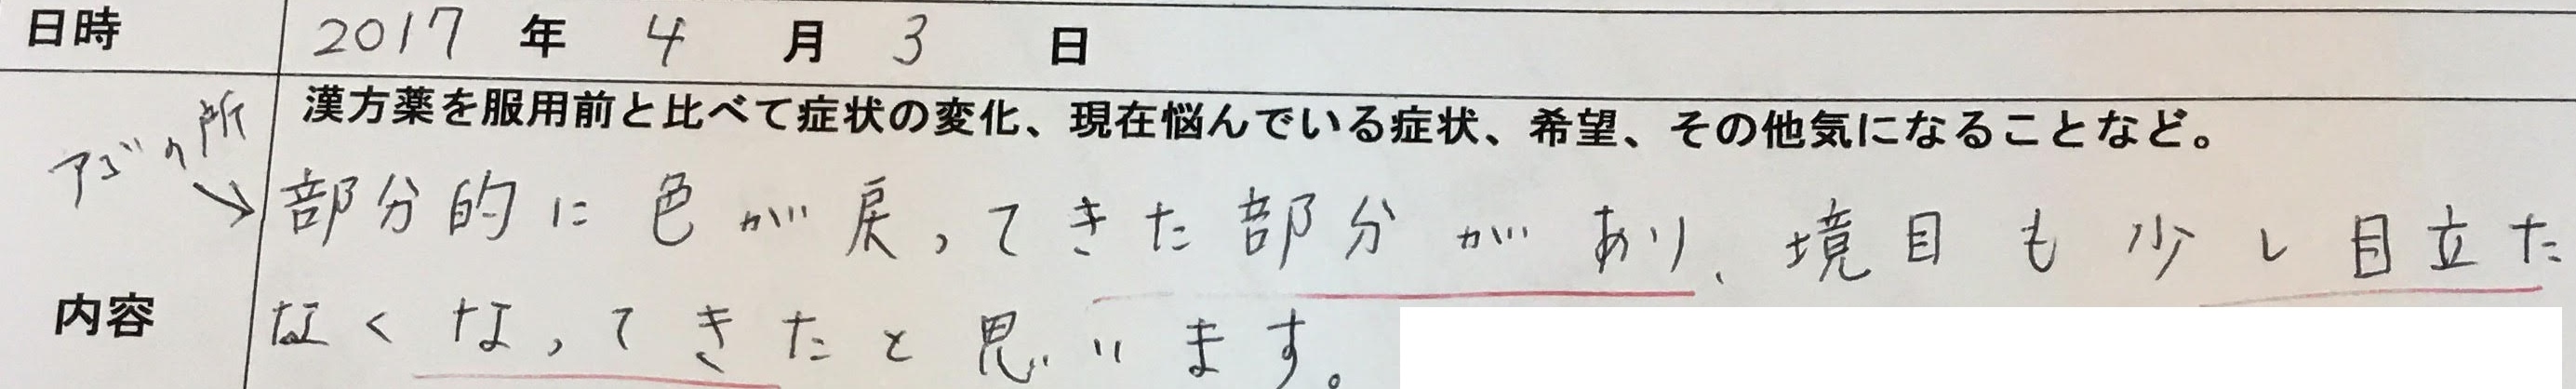 日時 2017 年 4 月 3 日
漢方薬を服用前と比べて症状の変化、現在悩んでいる症状、希望、その他気になることなど。
アゴの所→
部分的に色が戻ってきた部分があり、境目も少し目立た
内容
なくなってきたと思います。